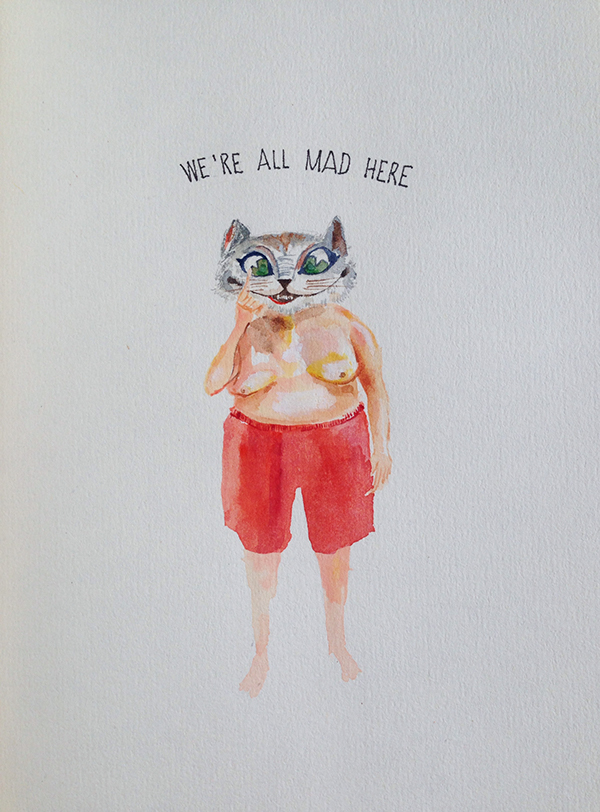 WE'RE ALL MAD HERE